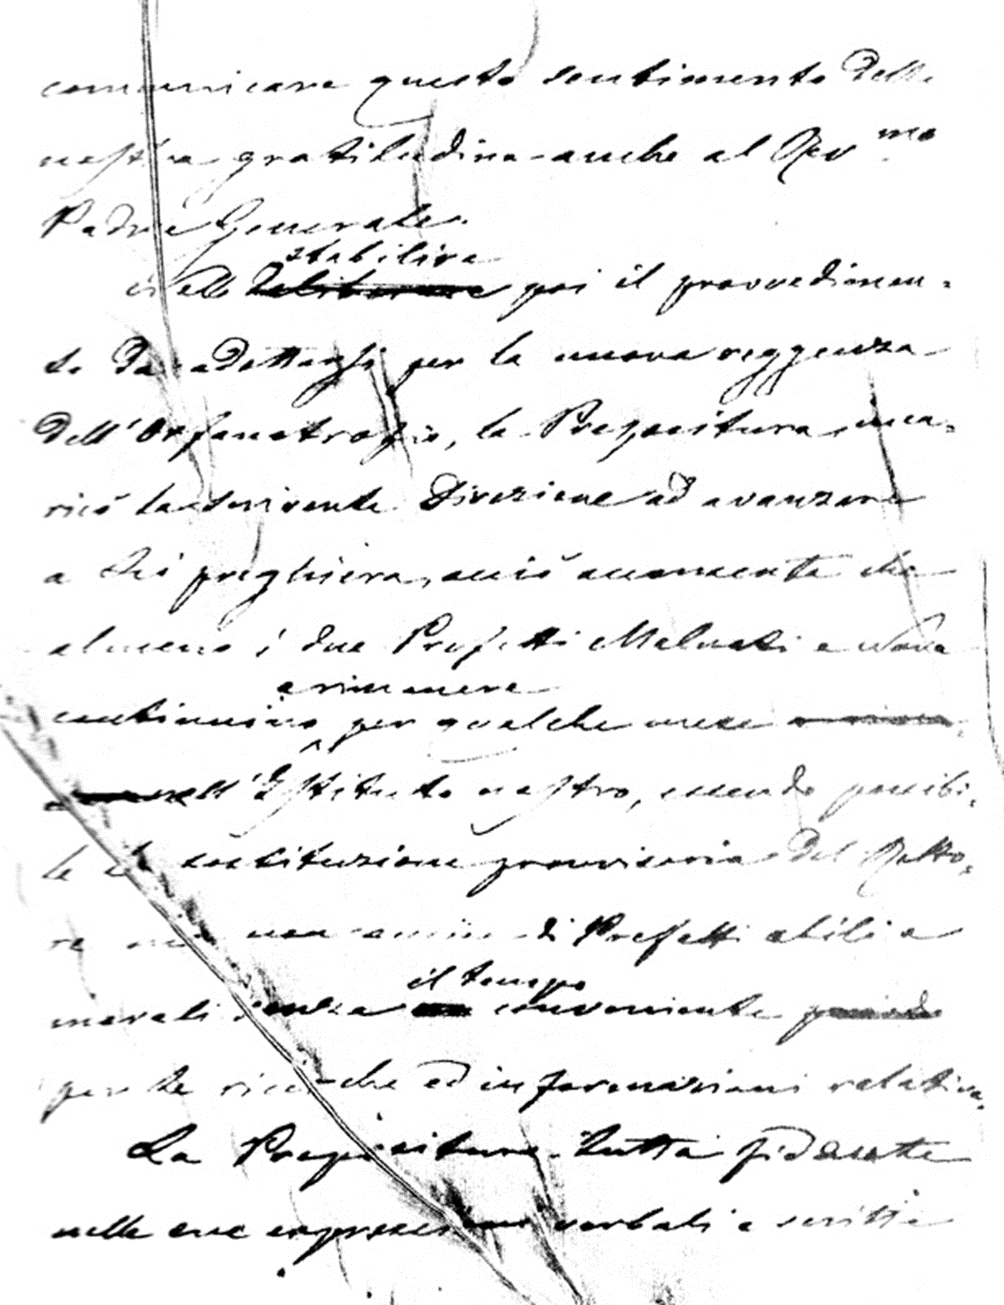 comunicare questo sentimento della
nostra gratitudine anche al Rev.mo
Padre Generale.
stabilire
Nello deliberare poi il provvedimen=
to da adottarsi per la nuova reggenza
dell'Orfanotrofio, la Prepositura inca=
ricò la scrivente Direzione ad avanzare
a Lei preghiera, acciò acconsenta che
almeno i due Prefetti e
a rimanere
continuino per qualche mese
nell'Istituto nostro, essendo possibi=
le la sostituzione provvisoria del Retto=
re ma non di Prefetti abili e
il tempo
morali senza conveniente
per le ricerche ed informazioni relative.
La Prepositura tutta fidente
nelle sue espressioni verbali e scritte